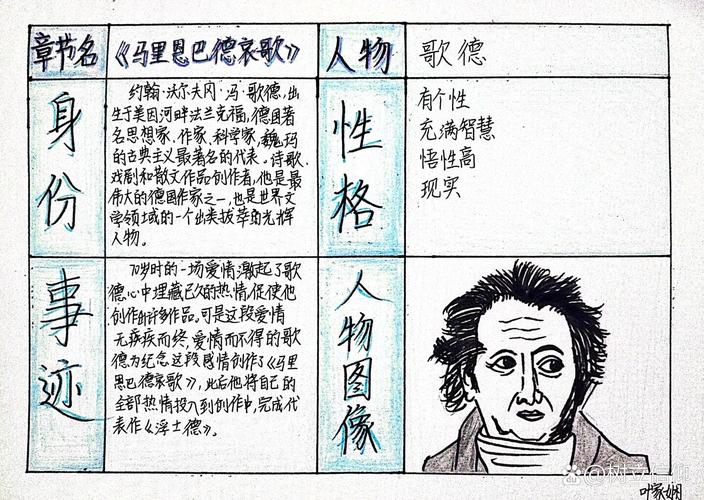 章节名
《马里恩巴德哀歌》
人物
歌德
身份
约翰·沃尔夫冈·冯·歌德,出
生于美因河畔法兰克福,德国著
名思想家、作家、科学家,魏玛
的古典主义最著名的代表。诗歌、
戏剧和散文作品创作者,他是最
伟大的德国作家之一,也是世界文
学领域的一个出类拔萃的光辉
人物。
性格
有个性
充满智慧
悟性高
现实
事迹
70岁时的一场爱情激起了歌
德心中埋藏已久的热情,促使他
创作的许多作品。可是这段爱情
无疾而终,爱情而不得的歌
德为纪念这段感情创作了《马里
恩巴德哀歌》,此后他将自己的
全部热情投入到创作中,完成代
表作《浮士德》。
人物图像
叶家娴